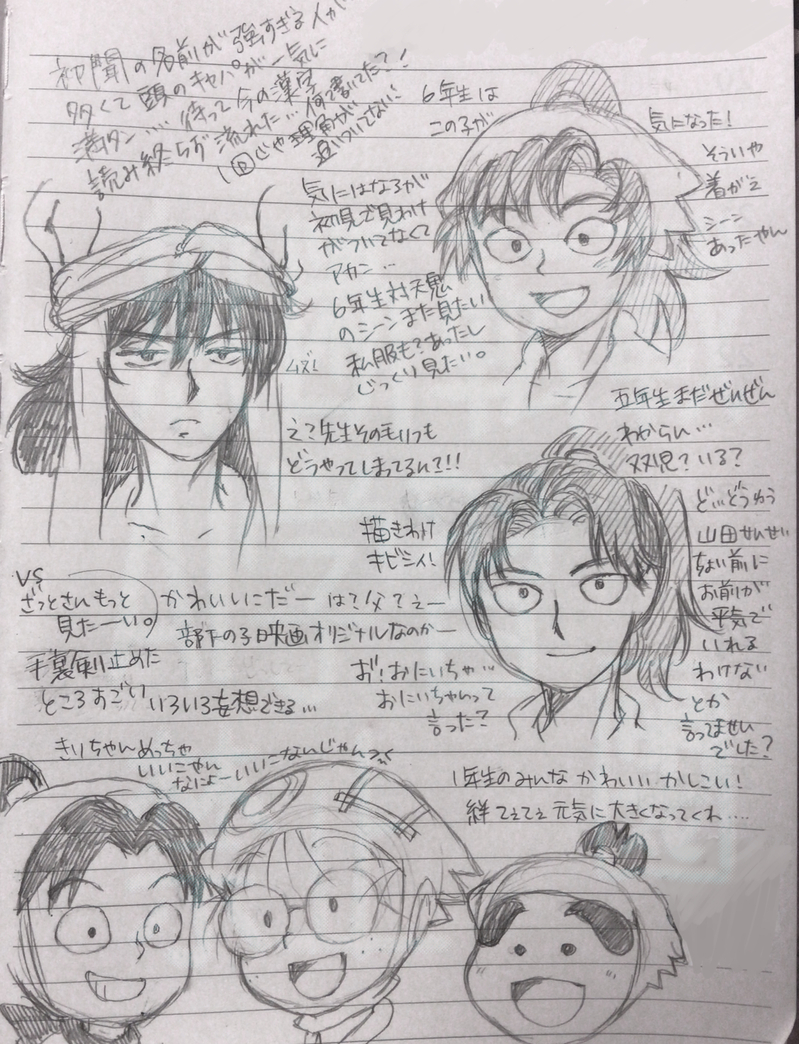 初聞の名前が強すぎる人が
多くて頭のキャパが一気に
満タン…待って今の漢字
読み終らず流れた…何て書いてた?!
じゃ理解が
追いついてない
6年生は
この子が
気になった!
そういや
着がえ
シーン
あったやん
気にはなるが
初見で見わけ
がついてなくて
アカン…
6年生対天鬼
のシーンまた見たい
私服も?あったし
じっくり見たい。
ムズい
え?先生そのもいつも
どうやってしまってるん?!!
五年生まだぜんぜん
わからん…
双児?いる?
描きわけ
キビシイ!
ど…どうゆう
山田せんせい
ちょい前に
お前が
平気で
いれる
わけない
とか
言ってませい
でした?
VS
ざっとさんもっと
見たーい。
かわいいにだー は?父?えー
部下の子映画オリジナルなのかー
手裏剣止めた
ところすごい いろいろ妄想できる…
お!おにいちゃ…
おにいちゃんって
言った?
きりちゃんめっちゃ
いいこやん
なによーいいこなんじゃん
1年生のみんな かわいい かしこい!
絆てぇてぇ元気に大きくなってくれ….